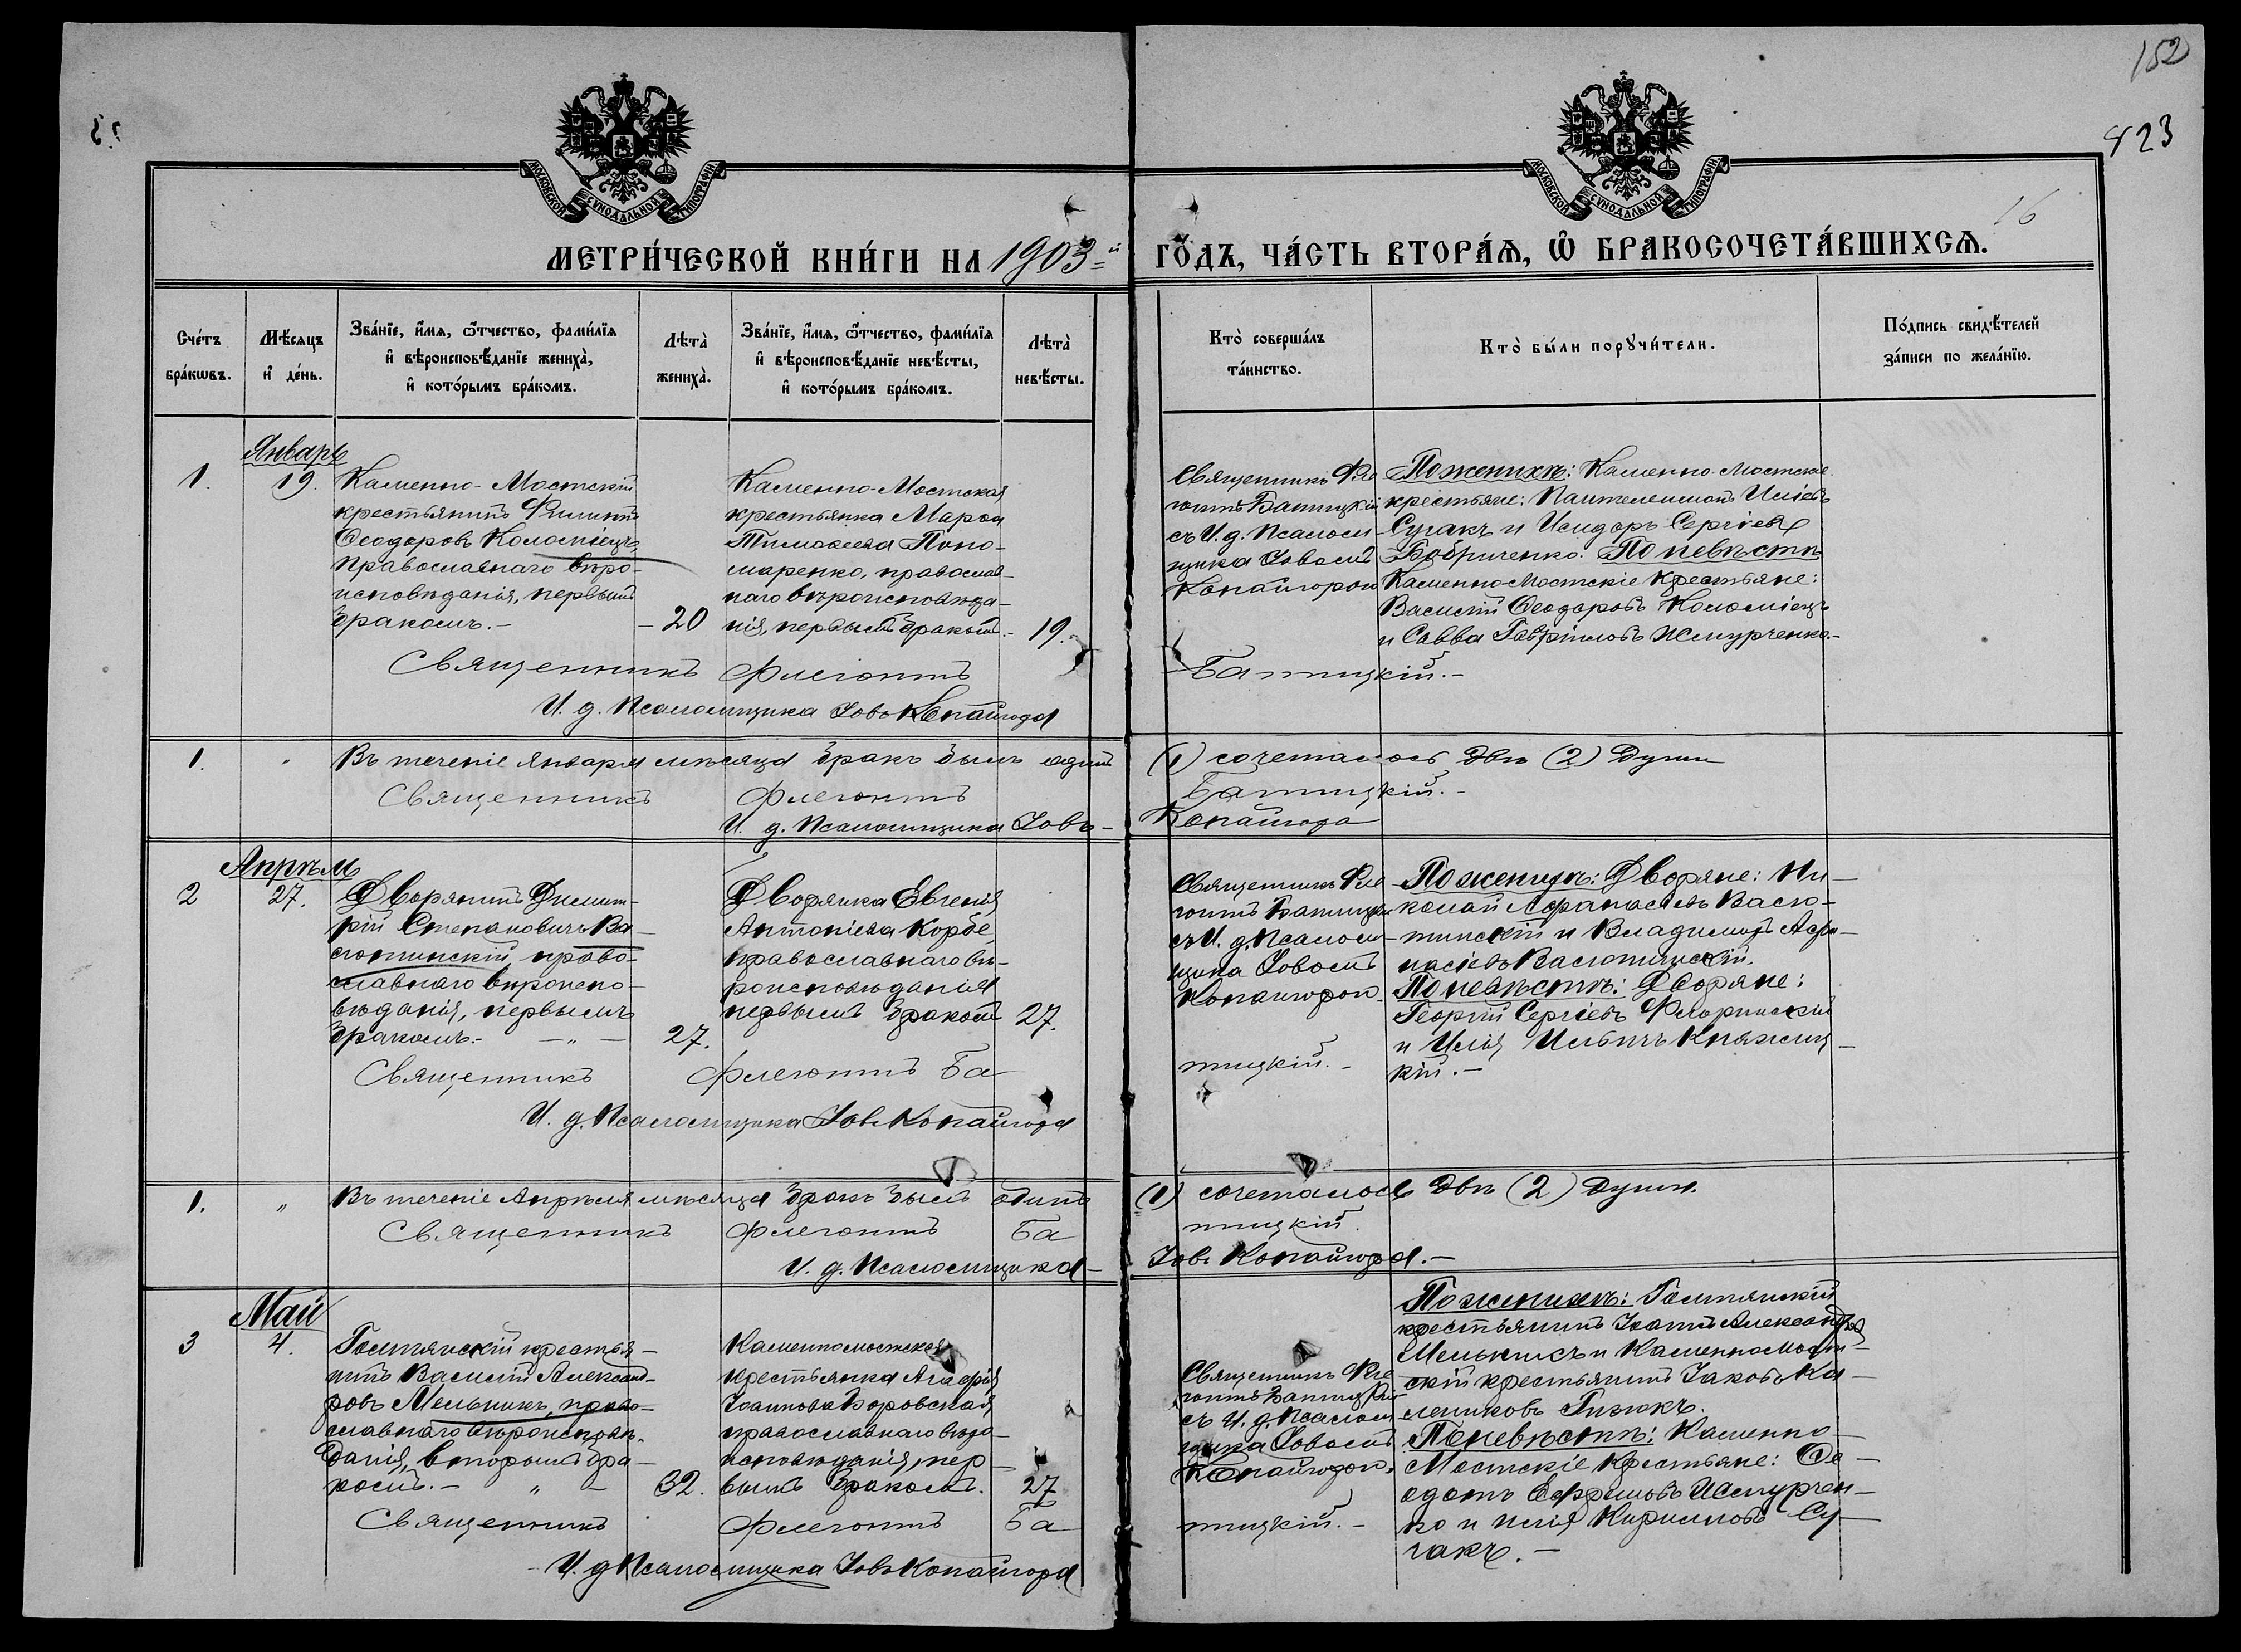 152
423
16
МОСКОВСКОЙ СѴНОДАЛЬНОЙ ТИПОГРАФІИ
МОСКОВСКОЙ СѴНОДАЛЬНОЙ ТИПОГРАФІИ
МЕТРИ́ЧЕСКОЙ КНИ́ГИ НА 1903=й ГО́ДЪ, ЧА́СТЬ ВТОРА́Ѧ, Ѿ БРАКОСОЧЕТА́ВШИХСѦ.
Сче́тъ
бра́кѡвъ.
Мѣ́сяцъ
и҆ де́нь.
Зва́нїе, и҆́мѧ, ѻ҆́тчество, фами́лїѧ
и҆ вѣроисповѣ́данїе жениха̀,
и҆ кото́рымъ бра́комъ.
Лѣта̀
жениха̀.
Зва́нїе, и҆́мѧ, ѻ҆́тчество, фами́лїѧ
и҆ вѣроисповѣ́данїе невѣ́сты,
и҆ кото́рымъ бра́комъ.
Лѣта̀
невѣ́сты.
Кто̀ соверша́лъ
та́инство.
Кто̀ бы́ли порꙋчи́тели.
По́дпись свидѣ́телей
за́писи по жела́нїю.
Январь
1.
19.
Каменно-Мостскій
крестьянинъ Филиппъ
Ѳеодоровъ Коломіецъ,
православнаго вѣро-
исповѣданія, первымъ
бракомъ.-
- 20
Каменно-Мостская
крестьянка Марѳа
Тимоѳеева Поно-
маренко, православ-
наго вѣроисповѣда-
нія, первымъ бракомъ.-
19.
Священникъ Фле
гонтъ Батицкій
съ И. д. Псалом-
щика Іовомъ
Копайгорою
По женихѣ: Каменно-Мостскіе
крестьяне: Пантелеимонъ Иліевъ
Сугакъ и Исидоръ Сергіевъ
Бобриченко. По невѣстѣ
Каменно Мостскіе крестьяне:
Василій Ѳеодоровъ Коломіецъ
и Савва Гавріиловъ Жмурченко.-
Священникъ Флегонтъ Батицкій.-
И. д. Псаломщика Іовъ Копайгора
1.
"
Въ теченіе Января мѣсяца бракъ былъ одинъ (1) сочеталось двѣ (2) души
Священникъ Флегонтъ Батицкій.-
И. д. Псаломщика Іовъ- Копайгора
Апрѣль
2
27.
Дворянинъ Димит-
рій Степановичъ Ва-
сютинскій, право-
славнаго вѣроиспо-
вѣданія, первымъ
бракомъ.- - " -
27.
Дворянка Евгенія
Антоніева Корбе,
православнаго вѣ-
роисповѣданія
первымъ бракомъ
27.
Священникъ Фле
гонтъ Батицкій
съ И. д. Псалом-
щика Іовомъ
Копайгорою.
По женихѣ: Дворяне: Ни-
колай Аѳанасіевъ Васю-
тинскій и Владиміръ Аѳа-
насіевъ Васютинскій.
По невѣстѣ: Дворяне:
Георгій Сергіевъ Флоринскій
и Илія Ильичъ Княжиц-
кій.-
Священникъ Флегонтъ Ба тицкій.-
И. д. Псаломщика Іовъ Копайгора
1.
"
Въ теченіе Апрѣля мѣсяца бракъ былъ одинъ (1) сочеталось двѣ (2) души.
Священникъ Флегонтъ Ба тицкій.
И. д. Псаломщика- Іовъ Копайгора.-
Май
3
4.
Голтянскій крестья-
нинъ Василій Александ-
ровъ Мельникъ, право-
славнаго вѣроисповѣ-
данія, вторымъ бра-
комъ.- " -
32.
Каменномостская
крестьянка Агафія
Іоаннова Боровская,
православнаго вѣро-
исповѣданія, пер-
вымъ бракомъ.
27
Священникъ Фле
гонтъ Батицкій
съ И. д. Псалом
щика Іовомъ
Копайгорою.
По женихѣ: Голтянскій
крестьянинъ Іоаннъ Александровъ
Мельникъ и Каменно Мост-
скій крестьянинъ Іаковъ Ка-
лениковъ Гизюкъ.
По невѣстѣ: Каменно-
Мостскіе крестьяне: Ѳе-
одотъ Ефремовъ Жмурчен-
ко и Илія Кирилловъ Су-
гакъ.-
Священникъ Флегонтъ Ба тицкій.-
И. д Псаломщика Іовъ Копайгора